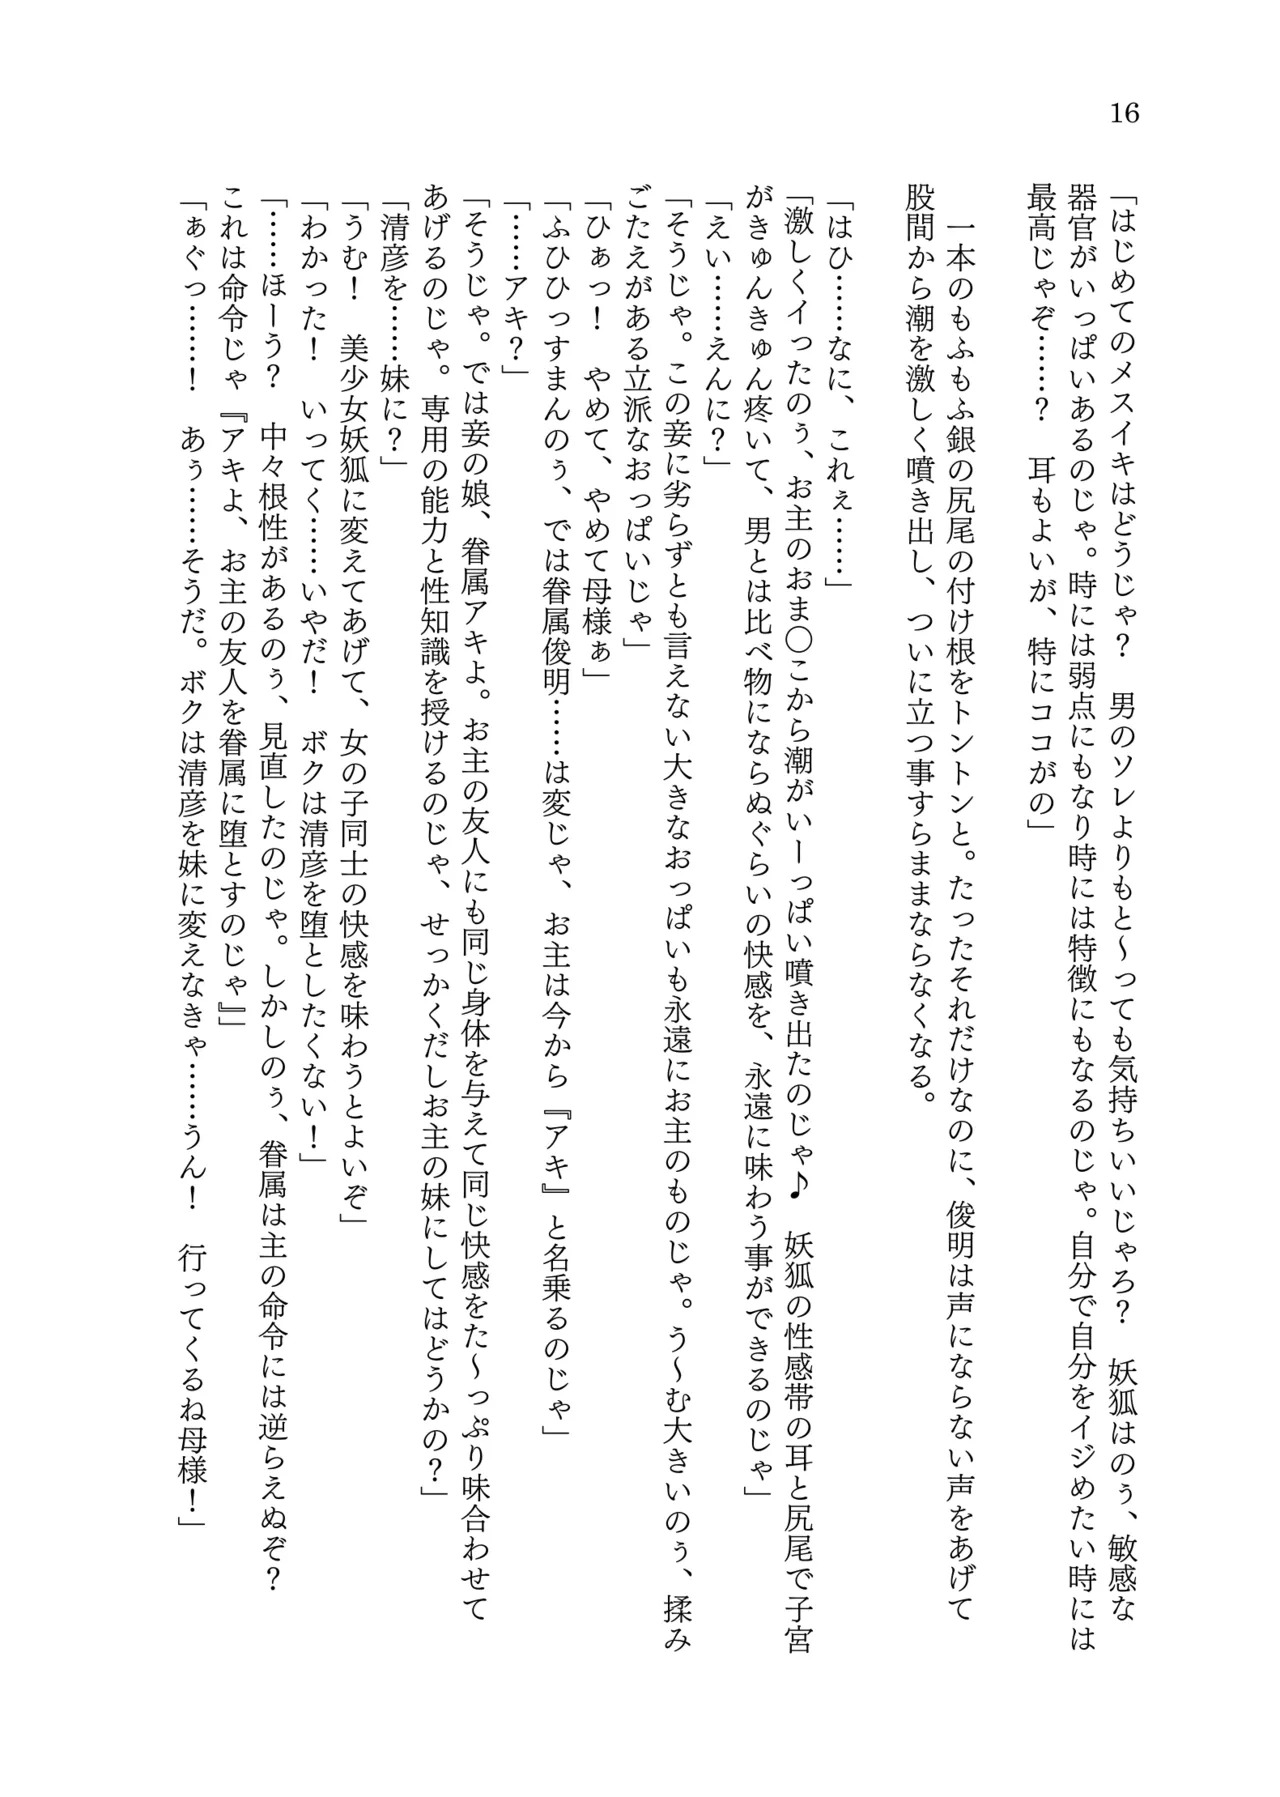 16
「はじめてのメスイキはどうじゃ？　男のソレよりもと～っても気持ちいいじゃろ？　妖狐はのぅ、敏感な
器官がいっぱいあるのじゃ。時には弱点にもなり時には特徴にもなるのじゃ。自分で自分をイジめたい時には
最高じゃぞ……？　耳もよいが、特にココがの」
　一本のもふもふ銀の尻尾の付け根をトントンと。たったそれだけなのに、俊明は声にならない声をあげて
股間から潮を激しく噴き出し、ついに立つ事すらままならなくなる。
「はひ……なに、これぇ……」
「激しくイったのぅ、お主のおま〇こから潮がいーっぱい噴き出たのじゃ♪　妖狐の性感帯の耳と尻尾で子宮
がきゅんきゅん疼いて、男とは比べ物にならぬぐらいの快感を、永遠に味わう事ができるのじゃ」
「えい……えんに？」
「そうじゃ。この妾に劣らずとも言えない大きなおっぱいも永遠にお主のものじゃ。う～む大きいのぅ、揉み
ごたえがある立派なおっぱいじゃ」
「ひぁっ！　やめて、やめて母様ぁ」
「ふひひっすまんのぅ、では眷属俊明……は変じゃ、お主は今から『アキ』と名乗るのじゃ」
「……アキ？」
「そうじゃ。では妾の娘、眷属アキよ。お主の友人にも同じ身体を与えて同じ快感をた～っぷり味合わせて
あげるのじゃ。専用の能力と性知識を授けるのじゃ、せっかくだしお主の妹にしてはどうかの？」
「清彦を……妹に？」
「うむ！　美少女妖狐に変えてあげて、女の子同士の快感を味わうとよいぞ」
「わかった！　いってく……いやだ！　ボクは清彦を堕としたくない！」
「……ほーう？　中々根性があるのぅ、見直したのじゃ。しかしのぅ、眷属は主の命令には逆らえぬぞ？
これは命令じゃ『アキよ、お主の友人を眷属に堕とすのじゃ』」
「ぁぐっ……！　あぅ……そうだ。ボクは清彦を妹に変えなきゃ……うん！　行ってくるね母様！」